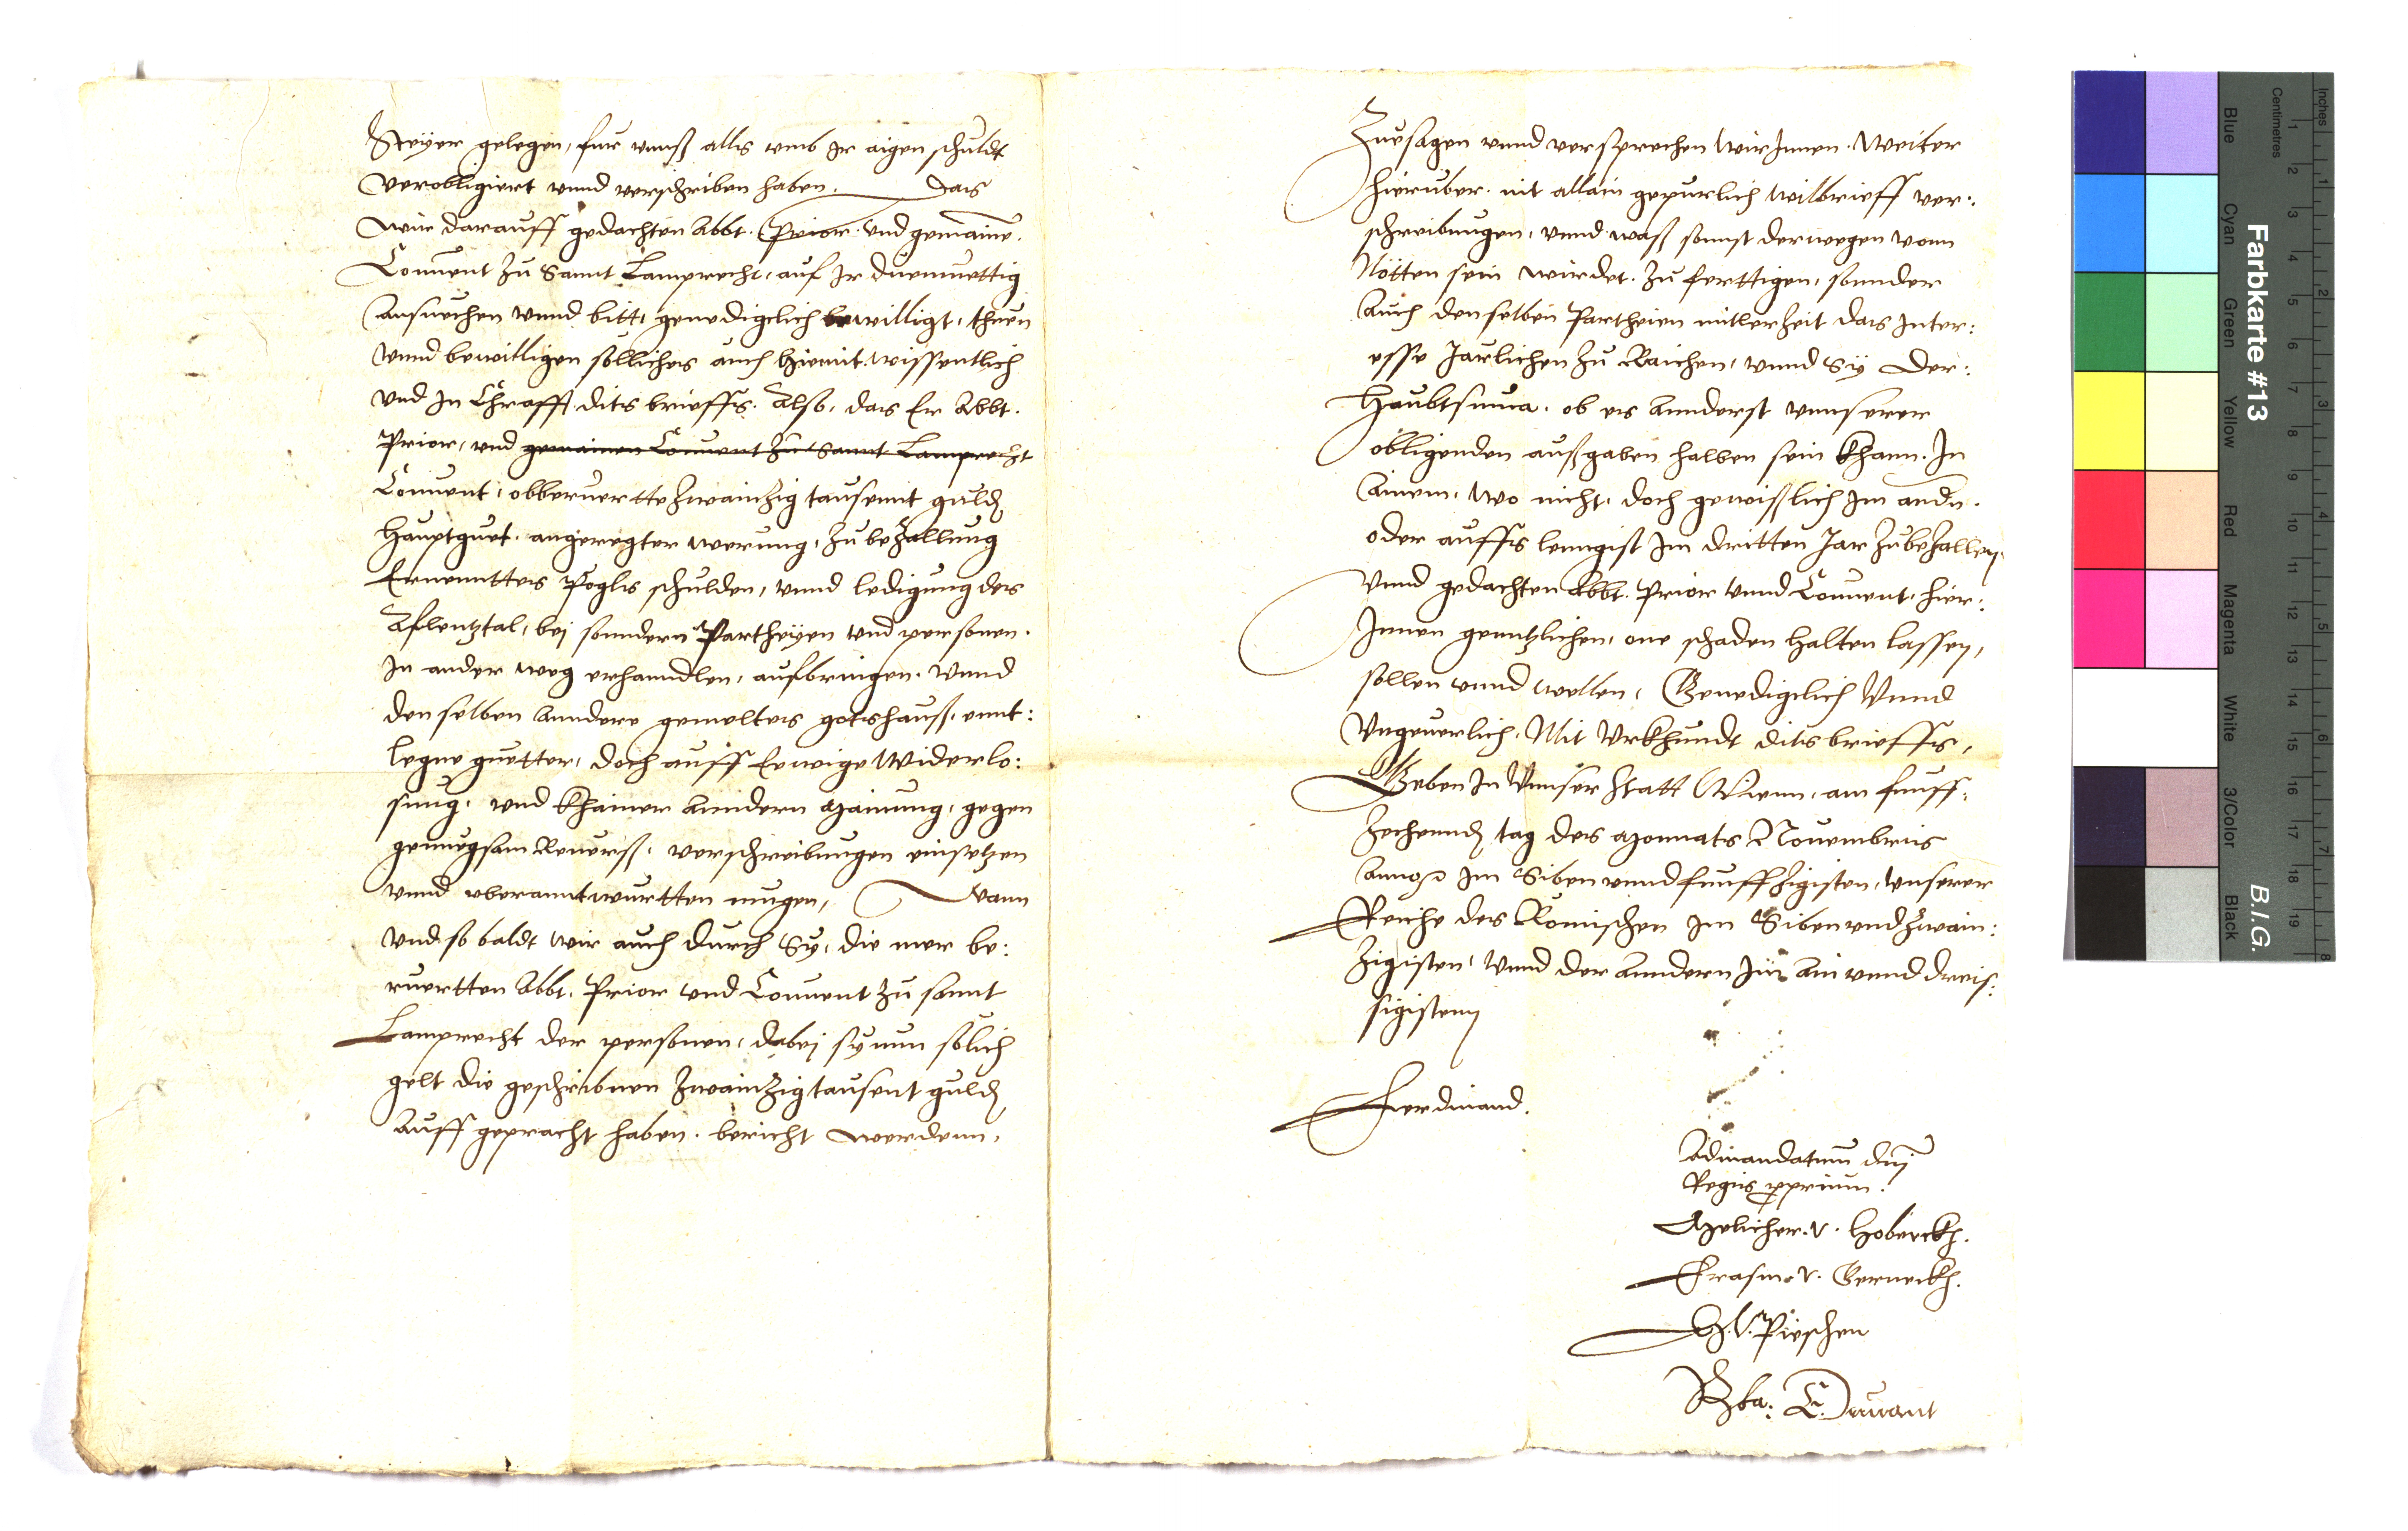 Steyer gelegen, fur unnß alls umb Ir aigen schuldt
verobligiert unnd verschriben haben. Das
wir darauff gedachten Abbt. Prior. und gemainen.
Convent zu Sannt Lamprecht, auf Ir diemuettig
Ansuechen unnd bitt, genedigclich bewilligt, thuen
unnd bewilligen sollichs auch hiemit wissentlich
und In Chrafft dits brieffs. Also, das Er Abbt.
Prior, und gemainen Convent zu Sannt Lamprecht
Convent, obberuertte zwainzig tausennt guld
Hauptguet. angeregter werung, zu bezallung
Ernenntters Pogls schulden, unnd ledigung des
Aflentztal, bej sonndern Partheyen und personen.
In ander weg erhanndlen, aufbringen. unnd
denselben anndere gemeltes gotshauß, ennt:
legne guetter, doch auff Eewige widerlo:
sung, und khainer anndern mainung, gegen
genuegsam Reverß, verschreibungen einsetzen
unnd uberanntwurtten mugen, Wann
und so baldt wir auch durch Sy, die mer be:
ruertten Abbt. Prior und Convent zu sannt
Lamprecht der personen, dabej sy nun solich
gelt die geschribnen zwainzig tausent guld
Auff gepracht haben. bericht werdenn,
Zuesagen unnd versprechen wir Innen. Weiter
hieruber. nit allain gepurlich wilbrieff ver:
schreibungen, unnd waß sonnst derwegen vonn
Nötten sein wirdet. zu ferttigen, sonnder
Auch denselben Partheien mitlerzeit das Inter:
esse Jarlichen zu Raichen, unnd Sy der:
Haubtsuma. ob es annderst unnserer
obligenden außgaben halben sein khann. In
Ainem, wo nicht, doch gewißlich Im andn.
oder auffs lenngist Im dritten Jar zubezallen
Unnd gedachten Abbt. Prior unnd Convent, hier:
Innen genntzlichen, one schaden halten lassen,
sollen unnd wellen, Genedigclich Unnd
Ungeuerlich. Mit Urkhundt dits brieffs,
Geben In Unnser Statt Wienn, am funff:
zechennd tag des Monnats Novembris
Anno im Siben unnd funffzigisten, Unnserer
Reiche des Römischen Im Siben und zwain:
zigisten, unnd der anndern Im Ain unnd dreis:
sigisten
Ferdinand.
Ad mandatum dnj
Regis proprium.
Melicher. v. Hoberckh.
Erasm. v. Gerneckh.
G. V. Pieschen